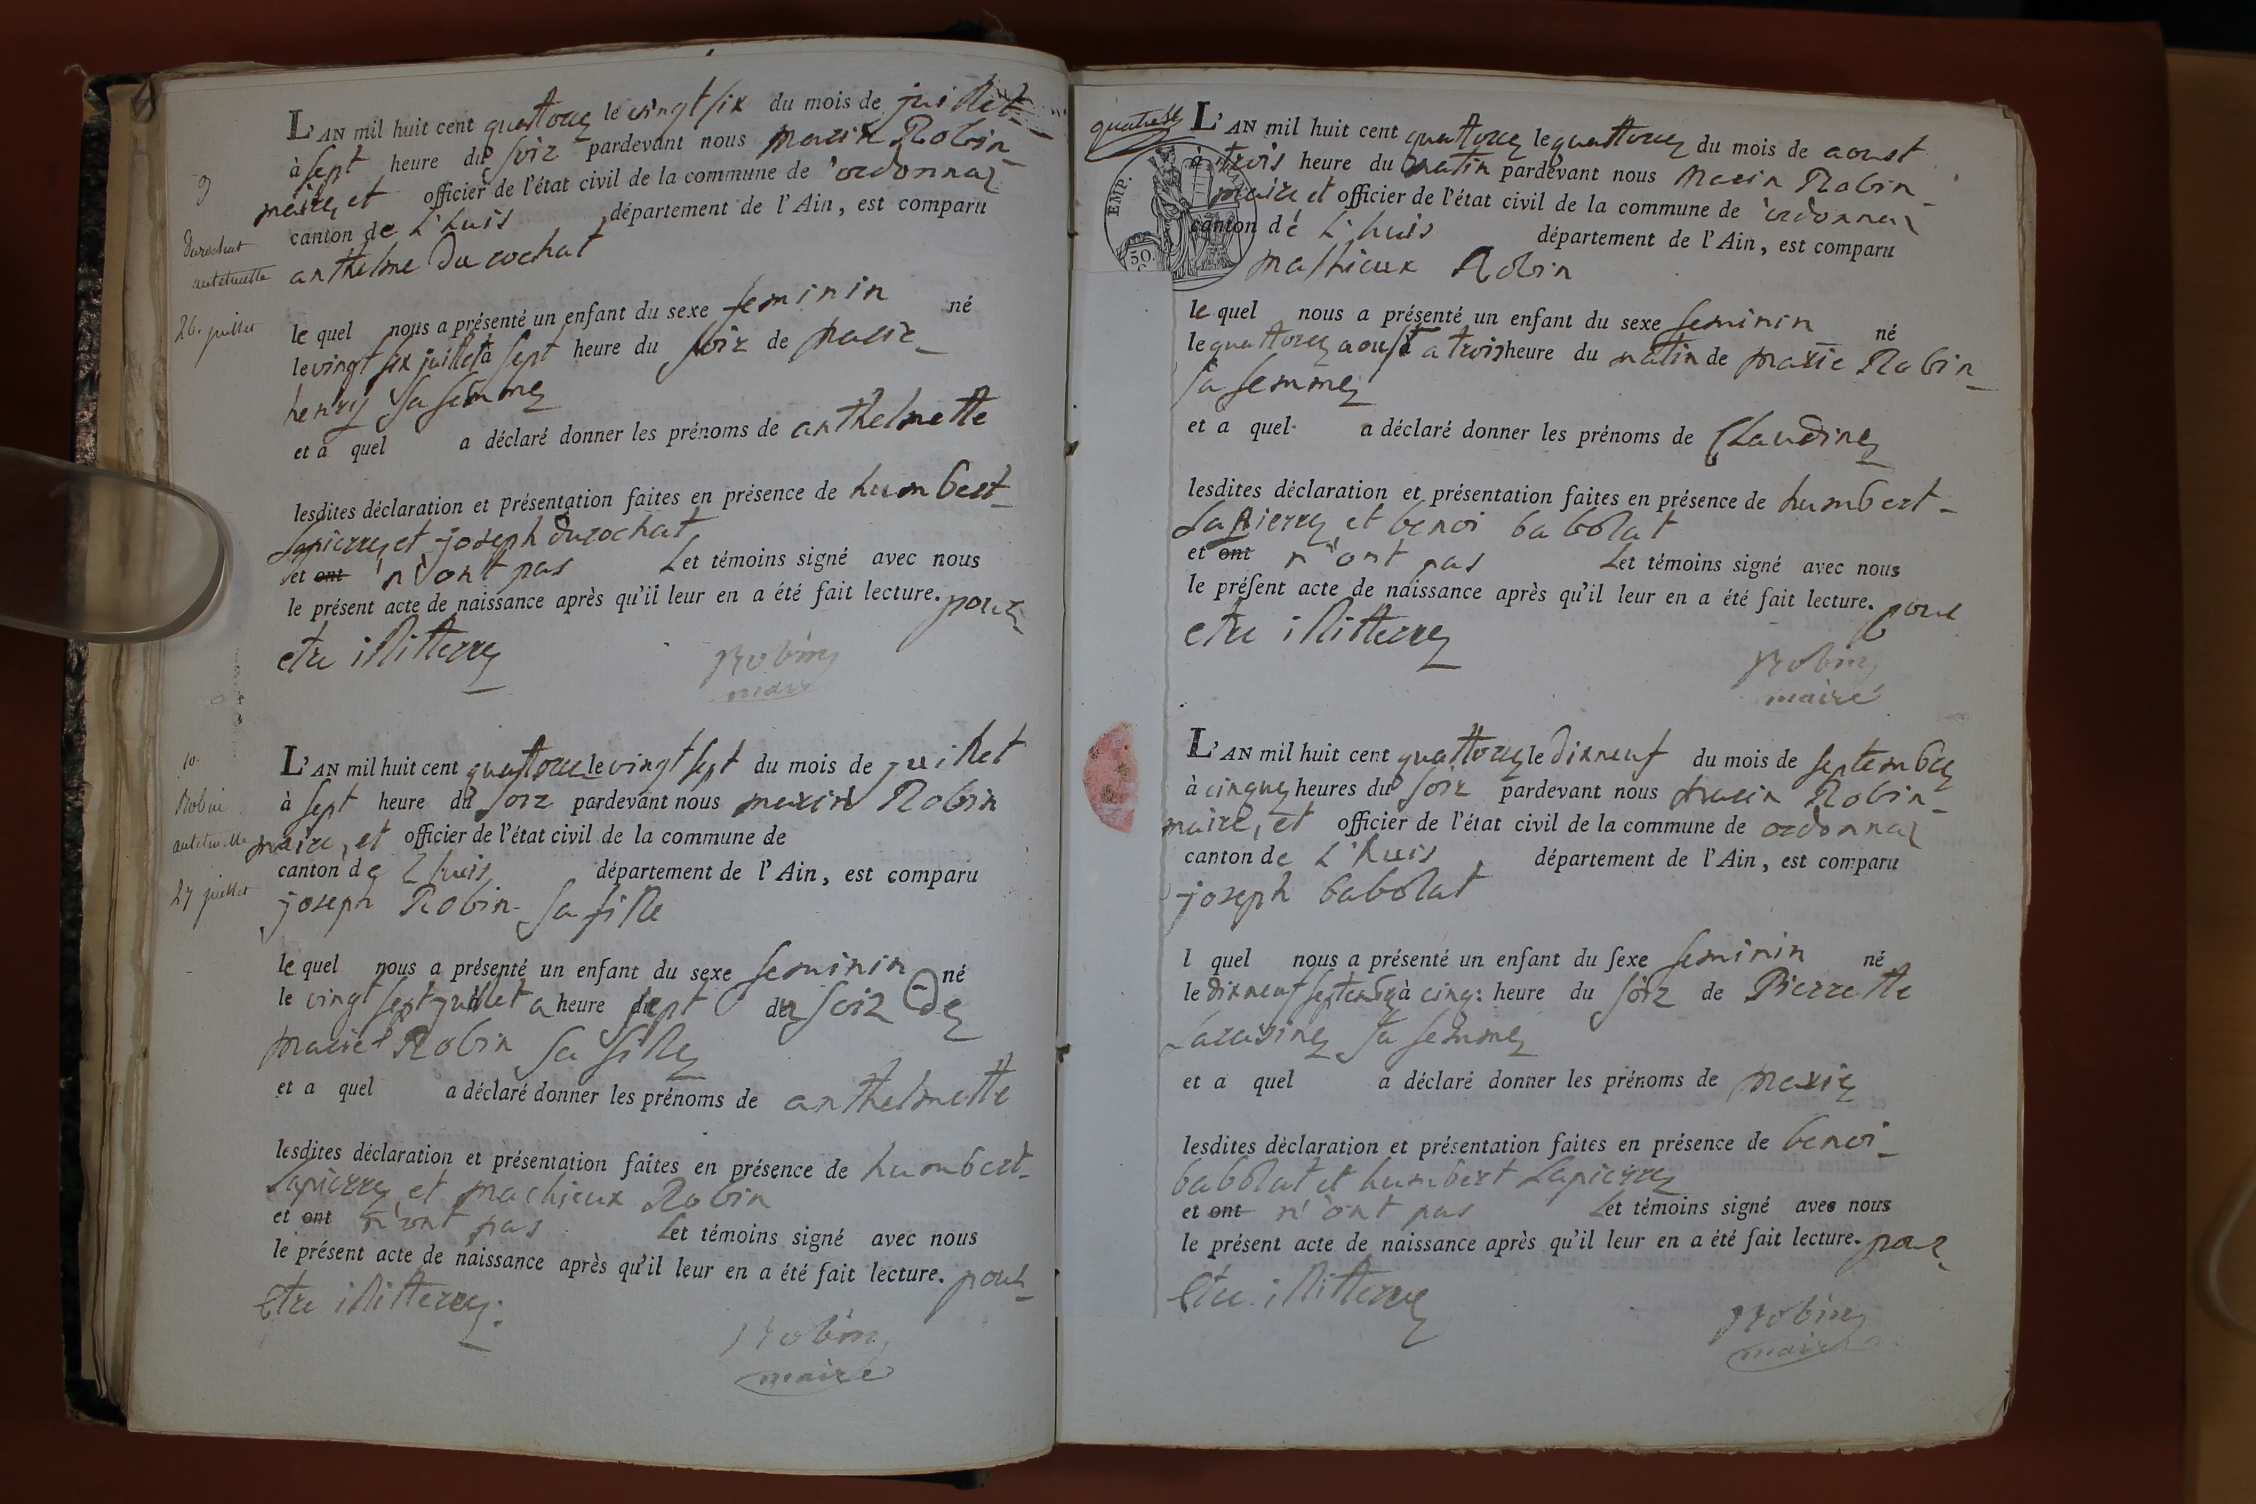 L'AN mil huit cent quattorze le vingt six du mois de juillet
à sept heure du soir pardevant nous marin Robin
maire, et officier de l'état civil de la commune de ordonnaz
canton de L'huis département de l'Ain, est comparu
anthelme Durochat
9
Durochat
26. juillet
le quel nous a présenté un enfant du sexe feminin né
le vingt six juillet à sept heure du soir de marie
henry sa femme
et a quel a déclaré donner les prénoms de anthelmette
lesdites déclaration et présentation faites en présence de humbert
Lapierre et joseph durochat
et ont n'ont pas Let témoins signé avec nous
le présent acte de naissance après qu'il leur en a été fait lecture. pour
etre illitterre
Robin
maire
L'AN mil huit cent quattorze le vingt sept du mois de juillet
à sept heure du soir pardevant nous marin Robin
maire, et officier de l'état civil de la commune de
canton de Lhuis département de l'Ain, est comparu
joseph Robin sa fille
10.
Robin
27 juillet
le quel nous a présenté un enfant du sexe feminin né
le vingt sept juillet a heure du sept du soir de
marie Robin sa fille
et a quel a déclaré donner les prénoms de anthelmette
lesdites déclaration et présentation faites en présence de humbert
Lapierre et mathieux Robin
et ont n'ont pas Let témoins signé avec nous
le présent acte de naissance après qu'il leur en a été fait lecture. pour
Etre illitterre.
Robin
maire
quatre
EMP.
50.
L'AN mil huit cent quattorze le quattorze du mois de aoust
à trois heure du matin pardevant nous Marin Robin
maire et officier de l'état civil de la commune de ordonnaz
canton de L'huis département de l'Ain, est comparu
mathieux Robin
le quel nous a présenté un enfant du sexe feminin né
le quattorze aoust a trois heure du matin de marie Robin
sa femme
et a quel a déclaré donner les prénoms de Claudine
lesdites déclaration et présentation faites en présence de humbert
Lapierre et benoi babolat
et ont n'ont pas Let témoins signé avec nous
le présent acte de naissance après qu'il leur en a été fait lecture. pour
etre illitterre
Robin
maire
L'AN mil huit cent quattorze le dixneuf du mois de septembre
à cinque heures du soir pardevant nous marin Robin
maire, et officier de l'état civil de la commune de ordonnaz
canton de L'huis département de l'Ain, est comparu
joseph babolat
l quel nous a présenté un enfant du sexe feminin né
le dixneuf septembre à cinq: heure du soir de Pierrette
sa femme
et a quel a déclaré donner les prénoms de marie
lesdites déclaration et présentation faites en présence de benoi
babolat et humbert Lapierre
et ont n'ont pas Let témoins signé avec nous
le présent acte de naissance après qu'il leur en a été fait lecture. pour
Etre illitterre
Robin
maire